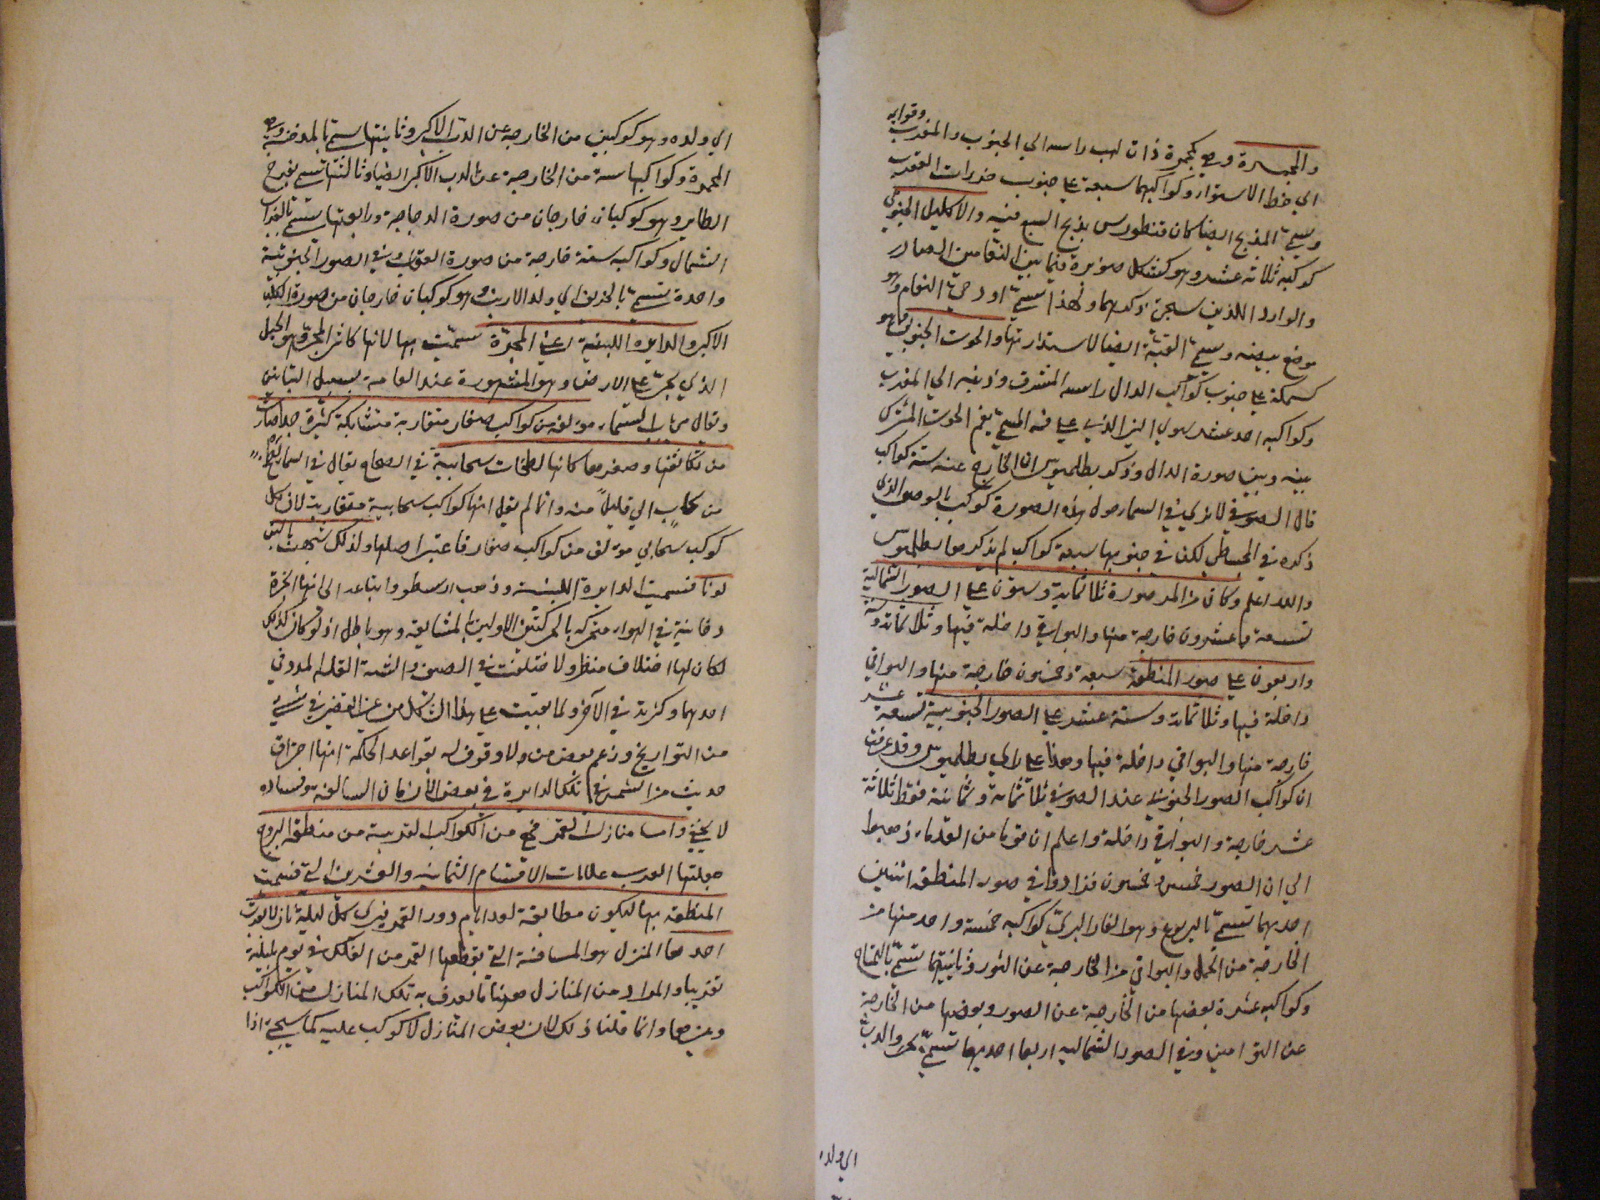 وقوايمه
والمجمرة وهو كمجمرة ذات لهب راسه الي الجنوب والمغرب
الي خط الاستواء وكواكبها سبعة علي جنوب خرزات العقرب
ويسمي المذبح ايضا كان قنطورس يذبح السبع فيه والاكليل الجنوبي
كوكبه ثلاثة عشر وهو كشكل صنوبرة فيما بين النعامين الصادر
والوارد اللذين سيجئ ذكرهما ولهذا يسمي ادحي النعام وهو
موضع بيضه ويسمي القبة ايضا لاستدارتها والحوت الجنوبي وهو
كسمكة علي جنوب كواكب الدالي راسه المشرق وذنبه الي المغرب
وكواكبه احد عشر سوي النير الذي علي فمه المسمي بفم الحوت المشترك
بينه وبين صورة الدالي وذكر بطلميوس ان الخارج عنه ستة كواكب
قال الصوفي لا نري في السماء حول هذه الصورة كوكب بالوصف الذي
ذكره في المجسطي لكن في جنوبها سبعة كواكب لم يذكرها بطلميوس
والله اعلم وكان من المرصودة ثلاثماية وستون علي الصور الشمالية
تسعة وعشرون خارجة منها والبواقي داخلة فيها وثلاثماية وستة
واربعون علي صور المنطقة سبعة وخمسون خارجة منها والبواقي
داخلة فيها وثلاثماية وستة عشر علي الصور الجنوبية تسعة عشر
خارجة منها والبواقي داخلة فيها وهذا علي راي بطلميوس وقد عرفت
ان كواكب الصور الجنوبية عند الصوفي ثلاثماية وثمانية فقط ثلاثة
عشر خارجة والبواقي داخلة واعلم ان قوما من القدماء ذهبوا
الي ان الصور خمس وخمسون فزادوا في صور المنطقة اثنتين
احديهما تسمي باليربوع وهو الفار البري كواكبه خمسة واحد منها من
الخارجة من الحمل والبواقي من الخارجة عن الثور وثانيتهما تسمي بالتمساح
وكواكبه عشرة بعضها من الخارجة عن الصور وبعضها من الخارجة
عن التوامين وفي الصور الشمالية اربعا احديها تسمي والدب
الي ولده
الي ولده وهو كوكبين من الخارجة عن الدب الاكبر وثانيتها تسمي بالمدخنة وهي
المجمرة وكواكبها ستة من الخارجة عن الدب الاكبر ايضا وثالثتها تسمي بفرخ
الطاير وهو كوكبان خارجان من صورة الدجاجة ورابعتها تسمي بالغراب
الشمالي وكواكبه ستة خارجة من صورة العقاب وفي الصور الجنوبية
واحدة تسمي بالخرنق اي ولد الارنب وهو كوكبان خارجان من صورة الكلب
الاكبر والدايرة اللبنية اعني المجرة سميت بها لانها كاثر المجرة وهو الحبل
الذي يجر علي الارض وهو المشهورة عند العامة بسبيل التبانين
ويقال من باب السماء مولفة من كواكب صغار متقاربة متشابكة كثيرة جدا صارت
من تكاثفها وصغرها كانها لطخات سحابية في الصحاح يقال في السماء لطخ
من سحاب اي قليل منه وانما لم يقل انها كواكب سحابية متقاربة لان كل
كوكب سحابي مولف من كواكب صغار فاعتبر اصلها ولذلك شبهت باللبن
لونا فسميت الدايرة اللبنية وذهب ارسطو واتباعه الي انها ابخرة
دخانية في الهواء متحركة بالحركتين الاوليين بالمشايعة وهو باطل اذ لو كان كذلك
لكان لها اختلاف منظر ولاختلفت في الصيف والشتاء لقلة المدد في
احدهما وكثرته في الآخر ولما بقيت علي هذا الشكل من غير تغيير في شيء
من التواريخ وزعم بعض من لا وقوف له بقواعد الحكمة انها احتراق
حدث من الشمس في تلك الدايرة في بعض الازمان السالفة وفساده
لا يخفي واما منازل القمر فهي من الكواكب القريبة من منطقة البروج
جعلتها العرب علامات الاقسام الثمانية والعشرين التي قسمت
المنطقة بها ليكون مطابقة لعدد ايام دور القمر فيري كل ليلة نازلا بقرب
احدها المنزل هو المسافة التي يقطعها القمر من الفلك في يوم بليلته
تقريبا والمراد من المنازل ههنا ما يعرف به تلك المنازل من الكواكب
وغيرها وانما قلنا ذلك لان بعض المنازل لا كوكب عليه كما سيجئ اذا